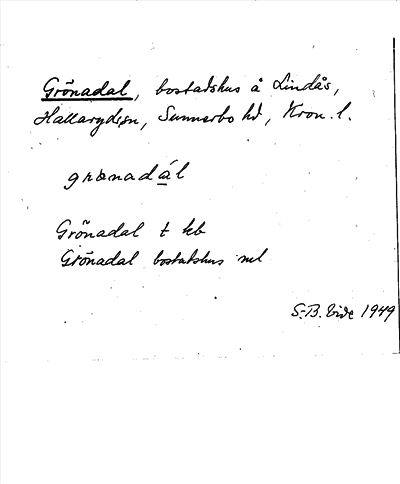 Grönadal, bostadshus å Lindås,
Hallarydssn, Sunnerbo hd, Kron. l.
grönadál
Grönadal t kb
Grönadal bostadshus ml
S.-B. Vide 1949